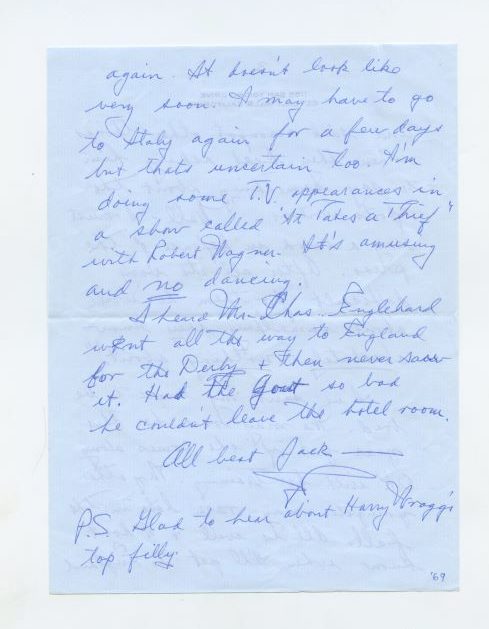 again. It doesn't look like
very soon. I may have to go
to Italy again for a few days
but thats uncertain too. I'm
doing some T.V. appearances in
a show called "It Takes a Thief"
with Robert Wagner. It's amusing
and no dancing.
I heard Mr. Chas. Englehard
went all the way to England
for the Derby + then never saw
it. Had the Gout so bad
he couldn't leave the hotel room.
All best Jack —
P.S. Glad to hear about Harry Wragg's
top filly.
'69